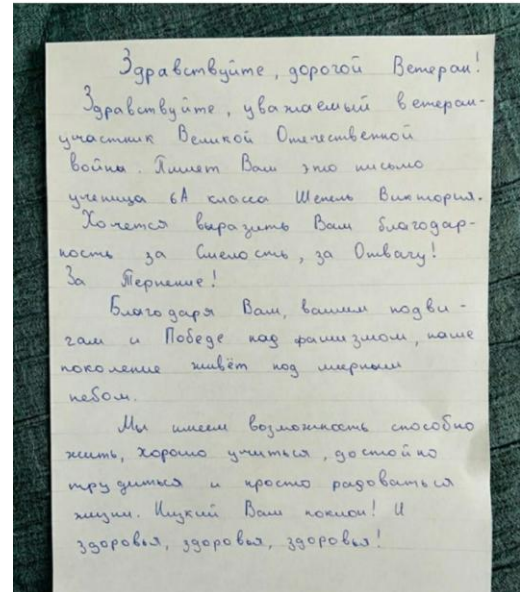 Здравствуйте, дорогой Ветеран!
Здравствуйте, уважаемый ветеран-
участник Великой Отечественной
войны. Пишет Вам это письмо
ученица 6А класса Шепель Виктория.
Хочется выразить Вам благодар-
ность за Смелость, за Отвагу!
За Терпение!
Благодаря Вам, вашим подви-
гам и Победе над фашизмом, наше
поколение живёт под мирным
небом.
Мы имеем возможность способно
жить, хорошо учиться, достойно
трудиться и просто радоваться
жизни. Низкий Вам поклон! И
здоровья, здоровья, здоровья!